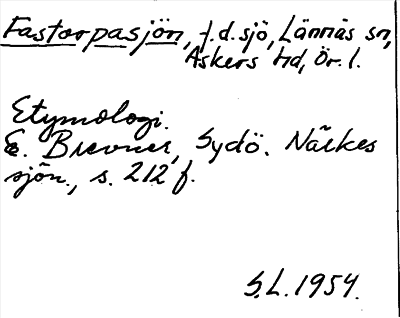 Fastorpasjön, f.d. sjö, Lännäs sn,
Askers hd, Ör. l.
Etymologi.
E. Brevner, Sydö. Närkes
sjön., s. 212 f.
S.L. 1954.